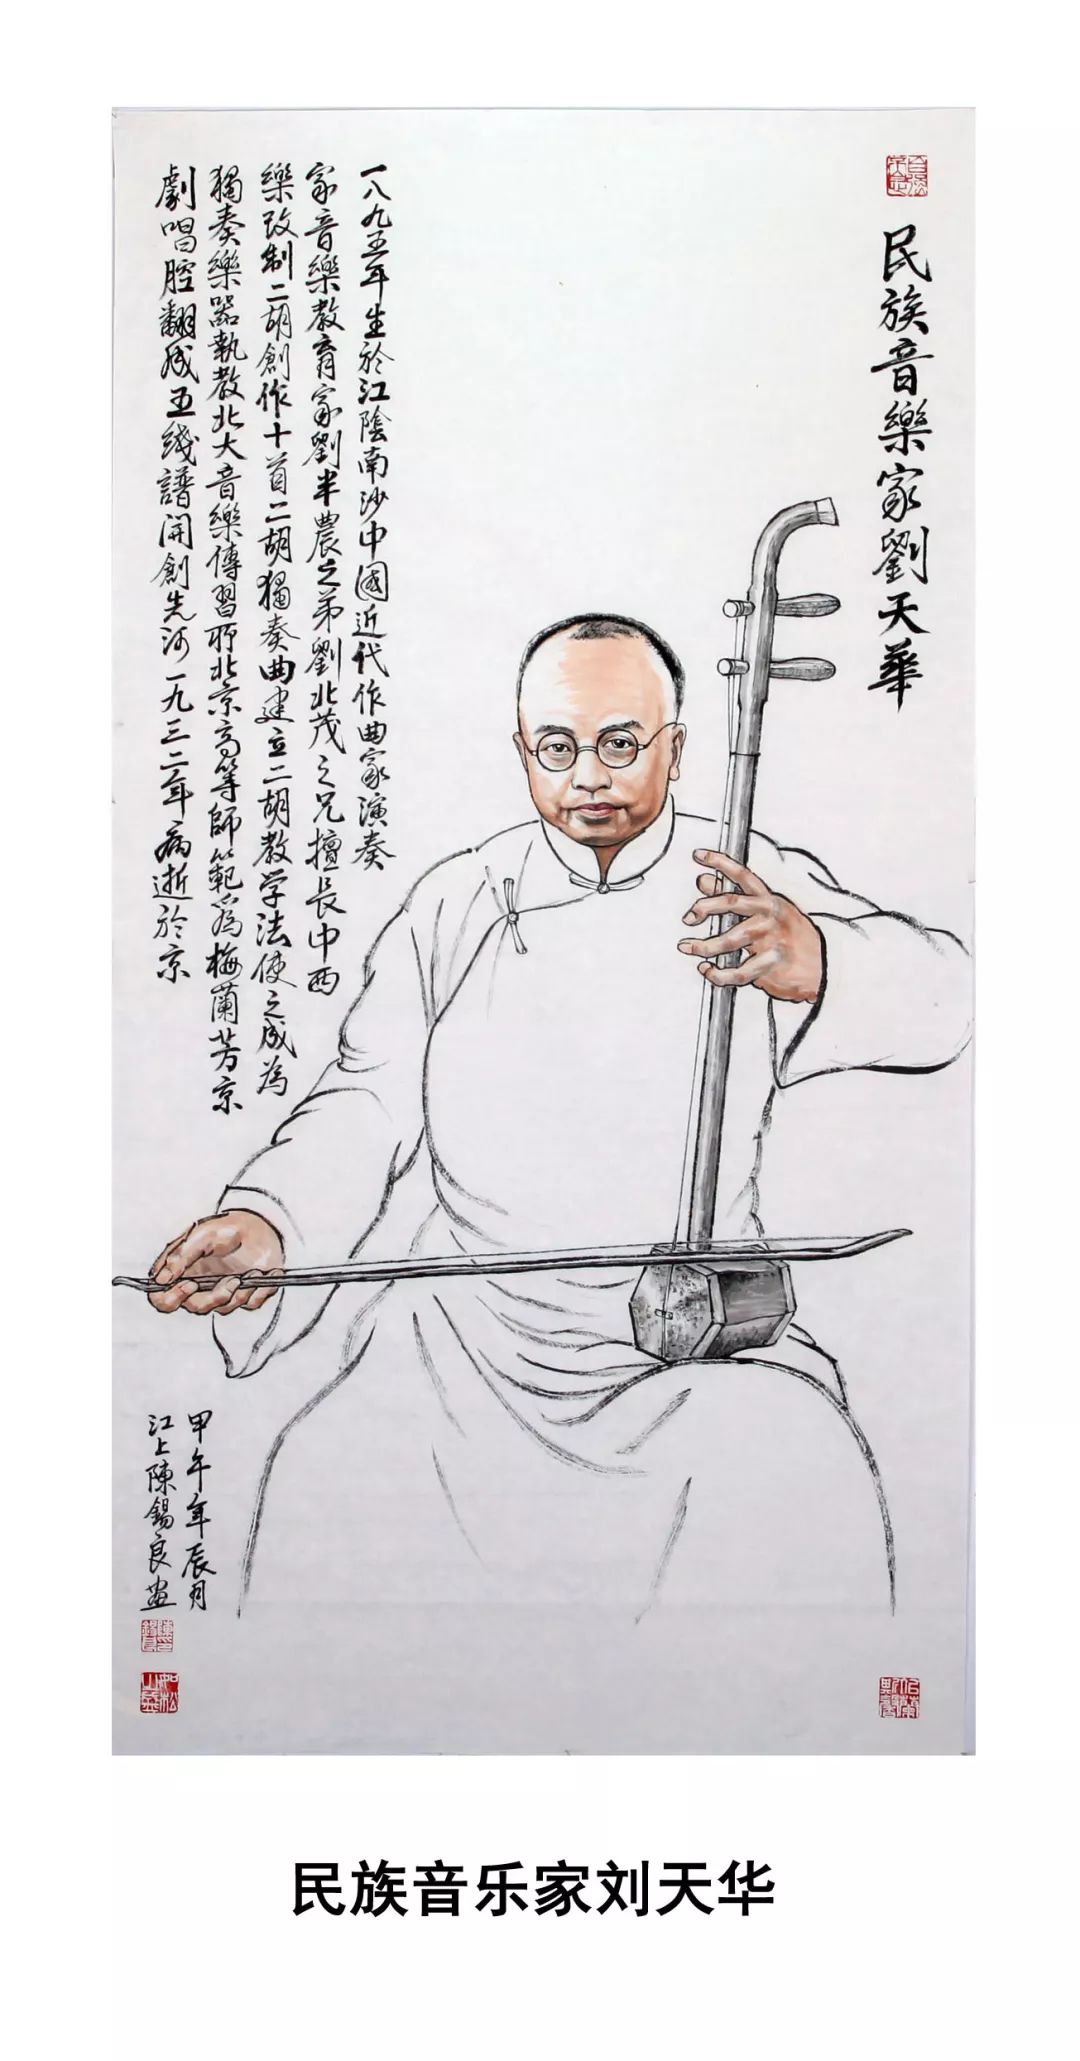 民族音樂家劉天華
一八九五年生於江陰南沙中國近代作曲家演奏
家音樂教育家劉半農之弟劉北茂之兄擅長中西
樂改制二胡創作十首二胡獨奏曲建立二胡教学法使之成為
獨奏樂器執教北大音樂傳習所北京高等師範爲梅蘭芳京
劇唱腔翻成五线譜開創先河一九三二年病逝於京
甲午年辰月
江上陳錫良畫
民族音乐家刘天华